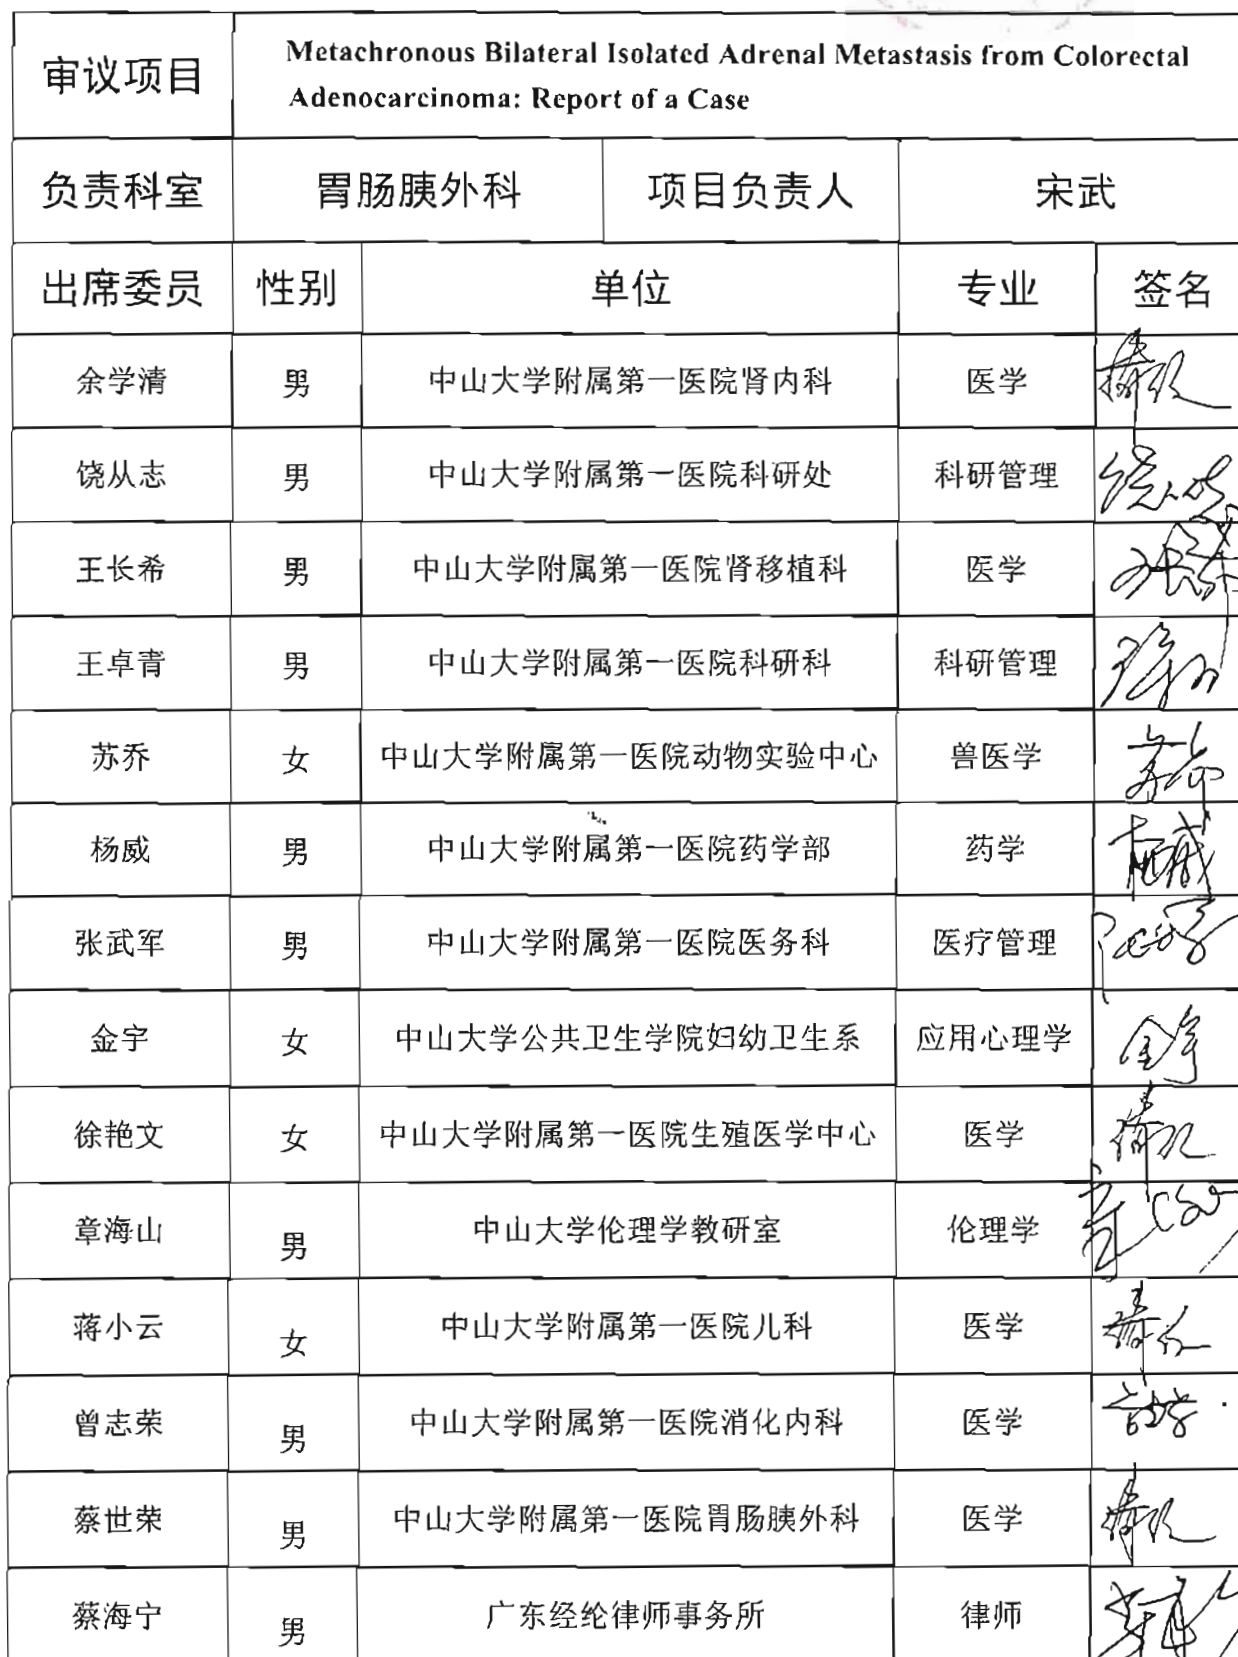 审议项目
Metachronous Bilateral Isolated Adrenal Metastasis from Colorectal
Adenocarcinoma: Report of a Case
负责科室 胃肠胰外科 项目负责人 宋武
出席委员 性别 单位 专业 签名
余学清 男 中山大学附属第一医院肾内科 医学
饶从志 男 中山大学附属第一医院科研处 科研管理
王长希 男 中山大学附属第一医院肾移植科 医学
王卓青 男 中山大学附属第一医院科研科 科研管理
苏乔 女 中山大学附属第一医院动物实验中心 兽医学
杨威 男 中山大学附属第一医院药学部 药学 杨威
张武军 男 中山大学附属第一医院医务科 医疗管理
金宇 女 中山大学公共卫生学院妇幼卫生系 应用心理学 金宇
徐艳文 女 中山大学附属第一医院生殖医学中心 医学
章海山 男 中山大学伦理学教研室 伦理学
蒋小云 女 中山大学附属第一医院儿科 医学
曾志荣 男 中山大学附属第一医院消化内科 医学
蔡世荣 男 中山大学附属第一医院胃肠胰外科 医学
蔡海宁 男 广东经纶律师事务所 律师